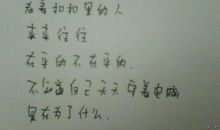 看着扣扣里的人
来来往往
在乎的不在乎的.
不知道自己天天守着电脑
是在为了什么.